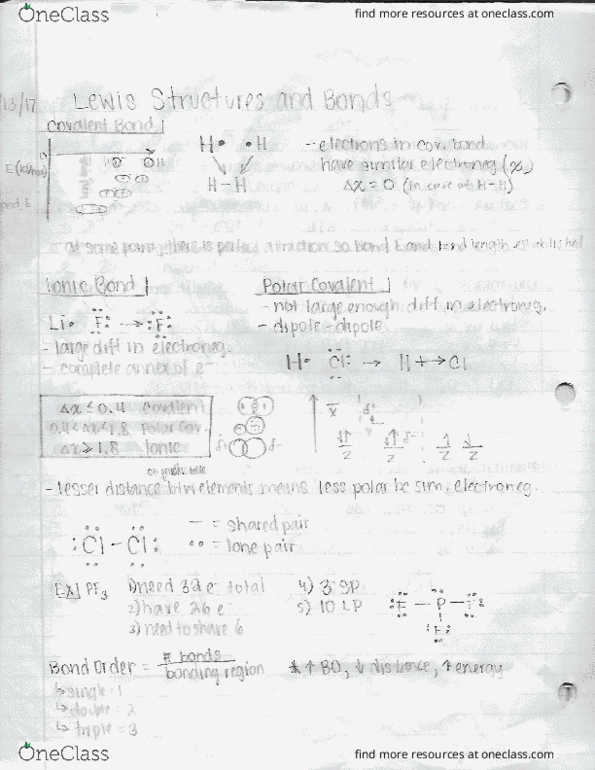 OneClass
find more resources at oneclass.com
/13/17 Lewis Structures and Bonds
Covalent Bond
H• •H -- electrons in cov. bond
E (kJ/mol) have similar electroneg (x)
H-H Δx = 0 (in case of H-H)
- at some point, there is perfect attraction so bond E and bond length established
Ionic Bond Polar Covalent
- not large enough diff in electroneg.
Li• :F: → :F: - dipole-dipole
- large diff in electroneg.
- complete annex of e⁻ H• Cl: → H+→Cl
Δx ≤ 0.4 Covalent
0.4<Δx<1.8 Polar Cov.
Δx ≥ 1.8 Ionic
on periodic table
- lesser distance btw elements means less polar bc sim. electroneg.
— = shared pair
:Cl-Cl: •• = lone pair
EX PF₃ 1) need 32 e⁻ total 4) 3 SP
2) have 26 e⁻ 5) 10 LP :F-P-F:
3) need to share 6 :F:
Bond Order = # bonds / bonding region * ↑ BO, ↓ distance, ↑ energy
↳ single = 1
↳ double = 2
↳ triple = 3
OneClass
find more resources at oneclass.com